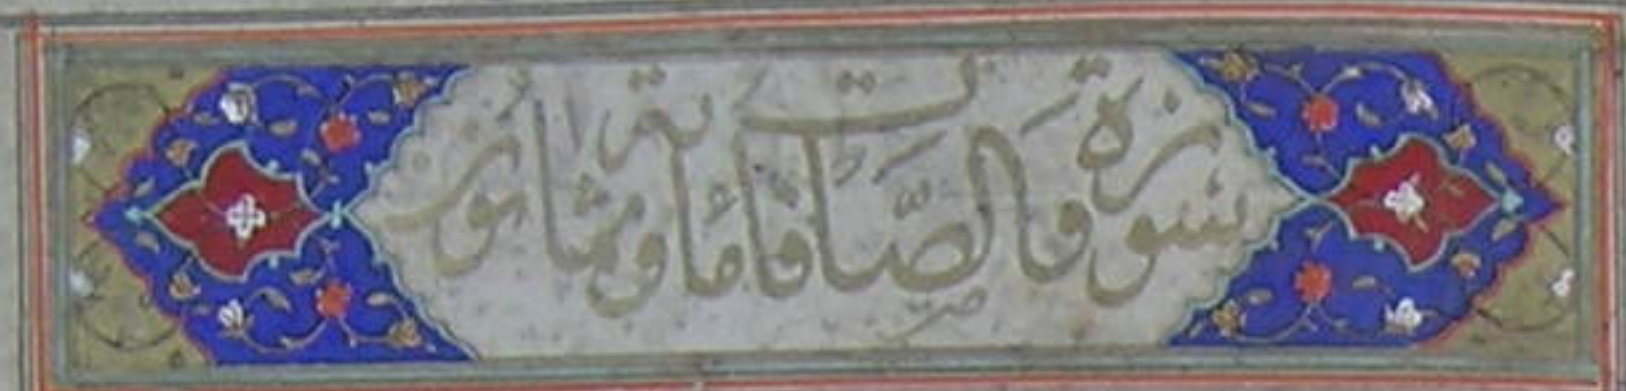 سورة والصافات مائة وثمانون